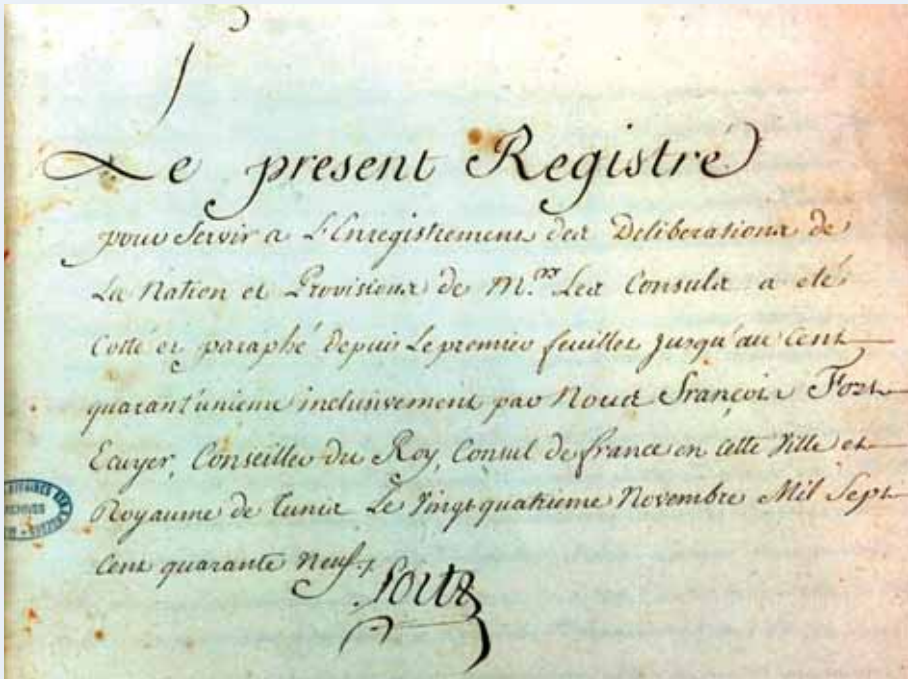 Le present Registré
pour Servir a L'Enregistrement des Deliberations de
La Nation et Provisions de M.rs Les Consuls a eté
Cotté et paraphé depuis Le premier feuillet jusqu'au Cent
quarant'unieme inclusivement par Nous François Fort
Ecuyer, Conseiller du Roy, Consul de france en cette Ville et
Royaume de Tunis Le Vingt quatrieme Novembre Mil Sept
Cent quarante Neuf ./.
Fort
AFFAIRES
ARCHIVES